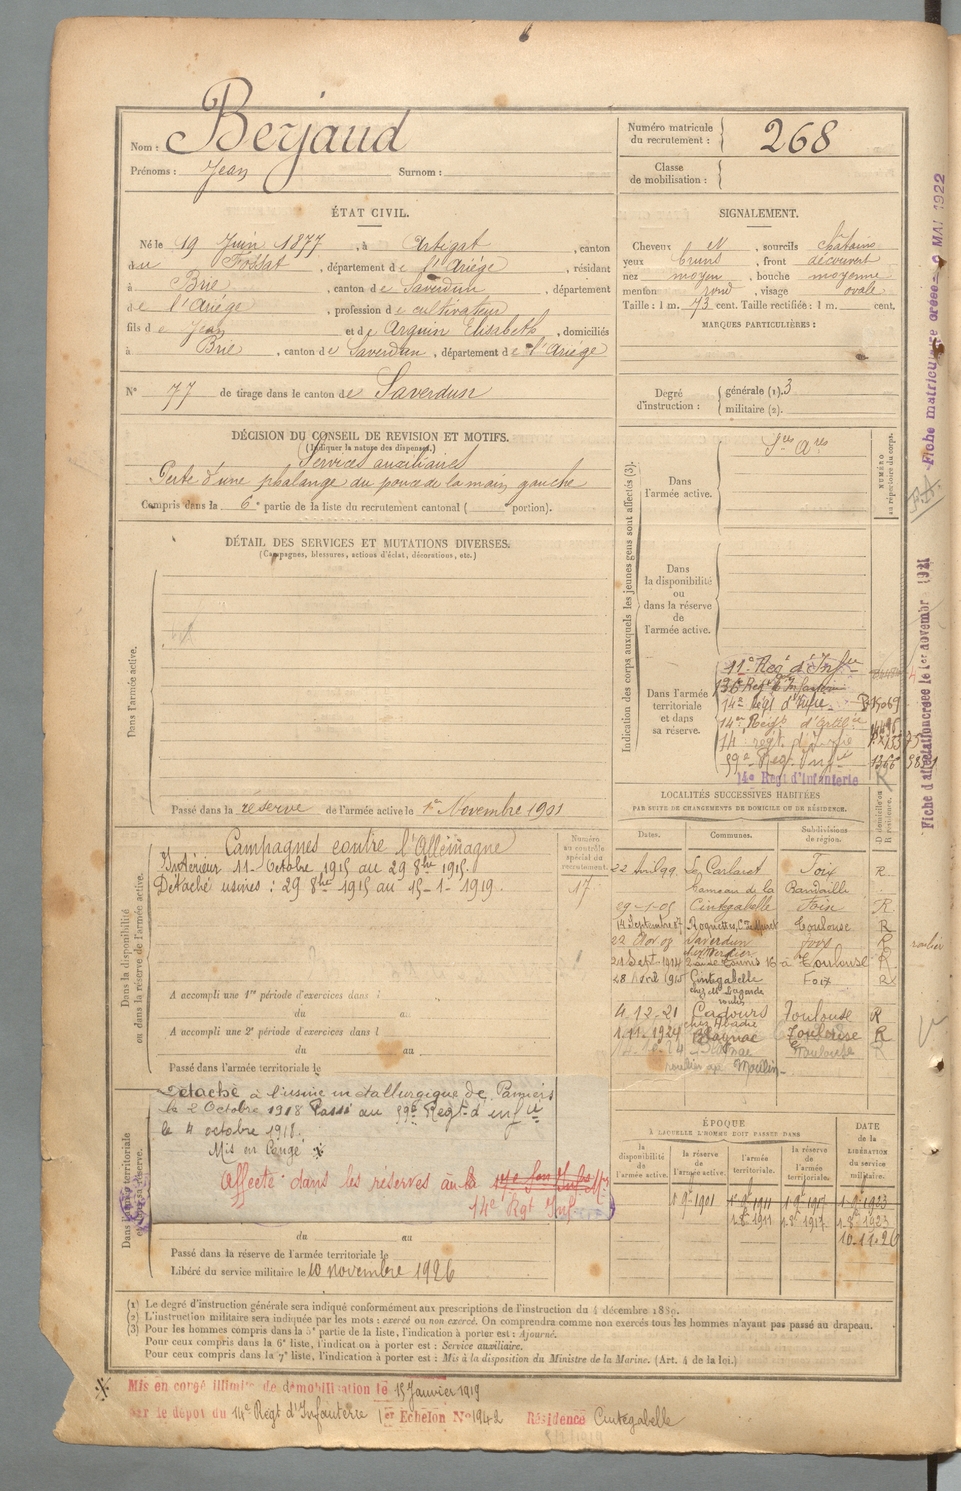 Nom : Berjaud
Prénoms : Jean Surnom :
Numéro matricule du recrutement : 268
Classe de mobilisation :
ÉTAT CIVIL.
Né le 19 Juin 1877, à Artigat, canton
du Fossat, département de l'Ariège, résidant
à Brie, canton de Saverdun, département
de l'Ariège, profession de cultivateur
fils de Jean et de Arguin Elisabeth, domiciliés
à Brie, canton de Saverdun, département de l'Ariège
N° 77 de tirage dans le canton de Saverdun
SIGNALEMENT.
Cheveux et, sourcils châtains
yeux bruns, front découvert
nez moyen, bouche moyenne
menton rond, visage ovale
Taille : 1 m. 73 cent. Taille rectifiée : 1 m. cent.
MARQUES PARTICULIÈRES :
Degré d'instruction : générale (1). 3
militaire (2).
DÉCISION DU CONSEIL DE REVISION ET MOTIFS.
(Indiquer la nature des dispenses.)
Services auxiliaires
Perte d'une phalange du pouce de la main gauche
Compris dans la 6e partie de la liste du recrutement cantonal ( portion).
DÉTAIL DES SERVICES ET MUTATIONS DIVERSES.
(Campagnes, blessures, actions d'éclat, décorations, etc.)
Dans l'armée active.
Passé dans la réserve de l'armée active le 1er Novembre 1901
Indication des corps auxquels les jeunes gens sont affectés (3).
NUMÉRO au répertoire du corps.
Dans l'armée active.
Ses Ares
Dans la disponibilité ou dans la réserve de l'armée active.
Dans l'armée territoriale et dans sa réserve.
11e Regt d'Infie
136e Regt d'Infanterie
14e Regt d'Infie
14e Regt d'
14e regt d'
59e Reg. Infie
14e Regt d'Infanterie
LOCALITÉS SUCCESSIVES HABITÉES
PAR SUITE DE CHANGEMENTS DE DOMICILE OU DE RÉSIDENCE.
Dates. Communes. Subdivisions de région. D domicile ou R résidence.
22 Avril 99 Le Carlaret Foix R
hameau de la Bandaille
29-1-05 Cintegabelle Foix R
14 Septembre 07 Roquettes, Toulouse R
22 Nov 09 Saverdun Foix R
21 Sept 1914 Toulouse R
28 Avril 1915 Cintegabelle Foix R
chez Mr Lagarde
4.12.21 Cadours Toulouse R
1.11.1924 Blagnac Toulouse R
Toulouse R
Moulin
Dans la disponibilité ou dans la réserve de l'armée active.
Numéro au contrôle spécial du recrutement.
17
Campagnes contre l'Allemagne
Intérieur 11 Octobre 1915 au 29 8bre 1915.
Détaché usines : 29 8bre 1915 au 15-1-1919.
A accompli une 1re période d'exercices dans l
du au
A accompli une 2e période d'exercices dans l
du au
Passé dans l'armée territoriale le
Dans l'armée territoriale et dans sa réserve.
Détaché à l'usine métallurgique de Pamiers
le 2 Octobre 1918 Passé au 59e Regt d'infie
le 4 octobre 1918.
Mis en Congé X
Affecté dans les réserves au
14e Rgt Inf
du au
Passé dans la réserve de l'armée territoriale le
Libéré du service militaire le 10 novembre 1926
ÉPOQUE
A LAQUELLE L'HOMME DOIT PASSER DANS
la disponibilité de l'armée active. la réserve de l'armée active. l'armée territoriale. la réserve de l'armée territoriale. DATE de la LIBÉRATION du service militaire.
1-9bre-1901 1-9-1911 1-9-1917 1-9-1923
1-8-1911 1-8-1917 1-8-1923
10-11-26
(1) Le degré d'instruction générale sera indiqué conformément aux prescriptions de l'instruction du 4 décembre 1889.
(2) L'instruction militaire sera indiquée par les mots : exercé ou non exercé. On comprendra comme non exercés tous les hommes n'ayant pas passé au drapeau.
(3) Pour les hommes compris dans la 5e partie de la liste, l'indication à porter est : Ajourné.
Pour ceux compris dans la 6e liste, l'indication à porter est : Service auxiliaire.
Pour ceux compris dans la 7e liste, l'indication à porter est : Mis à la disposition du Ministre de la Marine. (Art. 4 de la loi.)
X Mis en congé illimité de démobilisation le 15 Janvier 1919
par le dépôt du 14e Regt d'Infanterie 1er Echelon No 1942 Résidence Cintegabelle
Fiche matricule créée MAI 1922
Fiche d'affectation créée le 1er novembre 1921